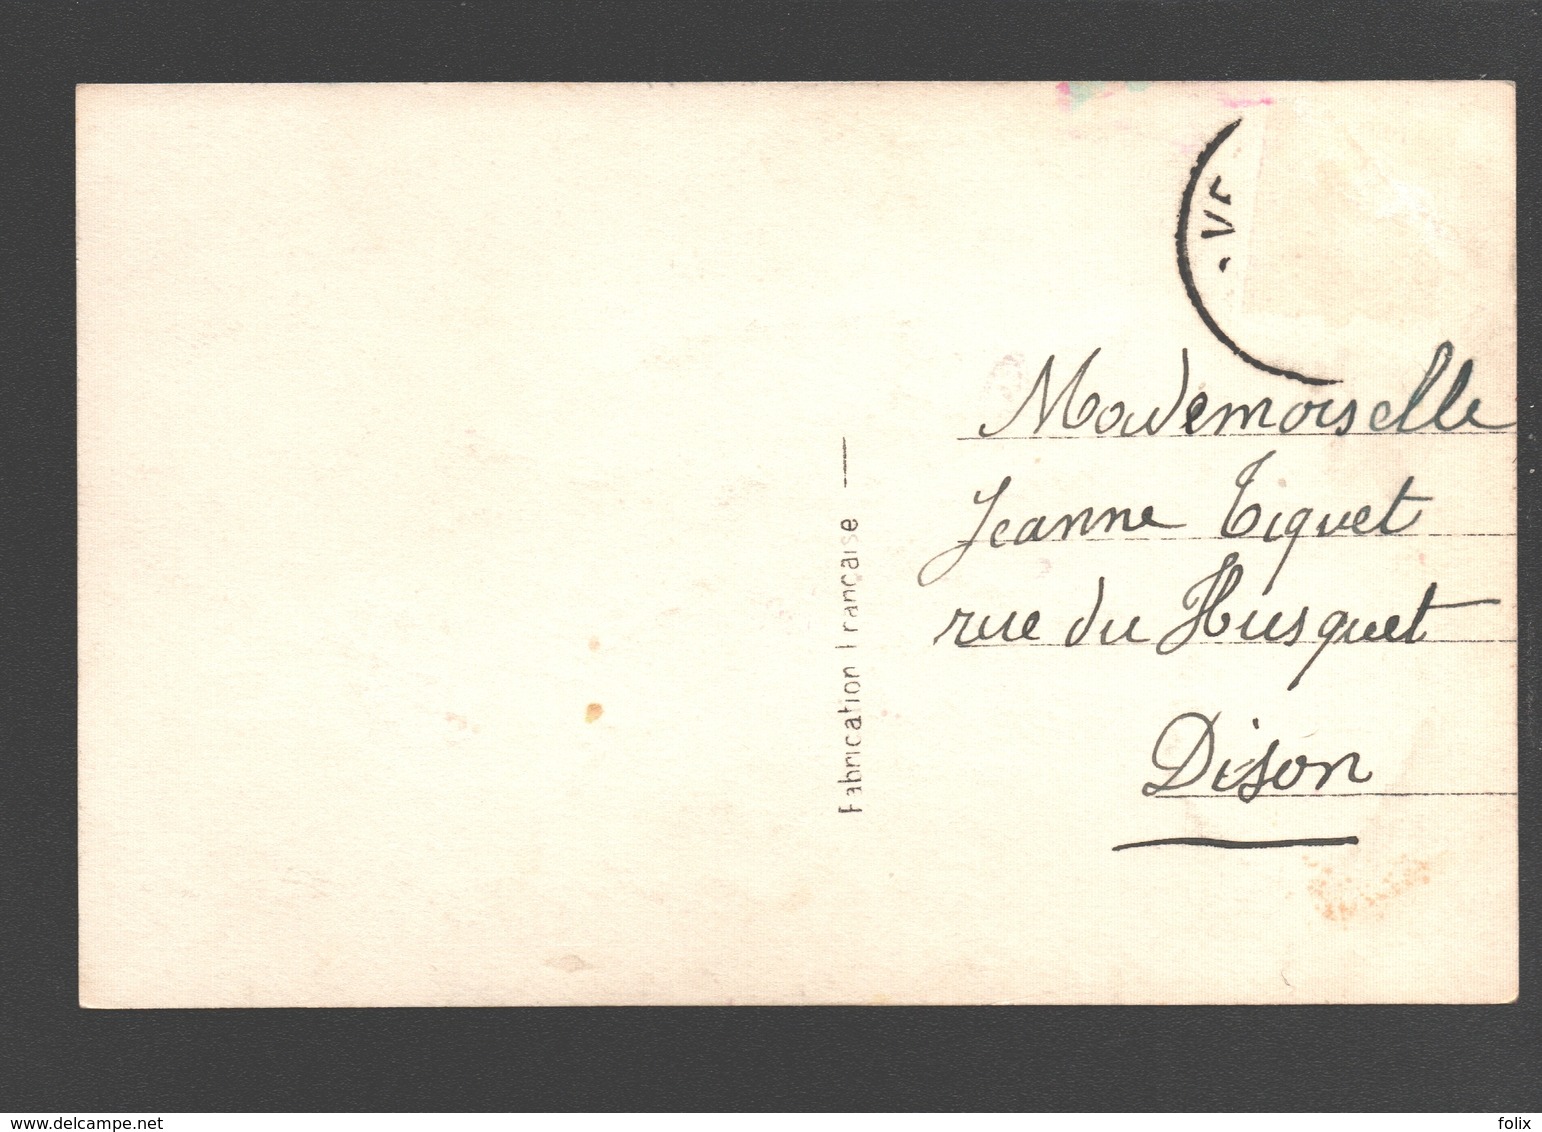 Mademoiselle
Jeanne Tiquet
rue du Husquet
Dison
Fabrication Française
www.delcampe.net
folix